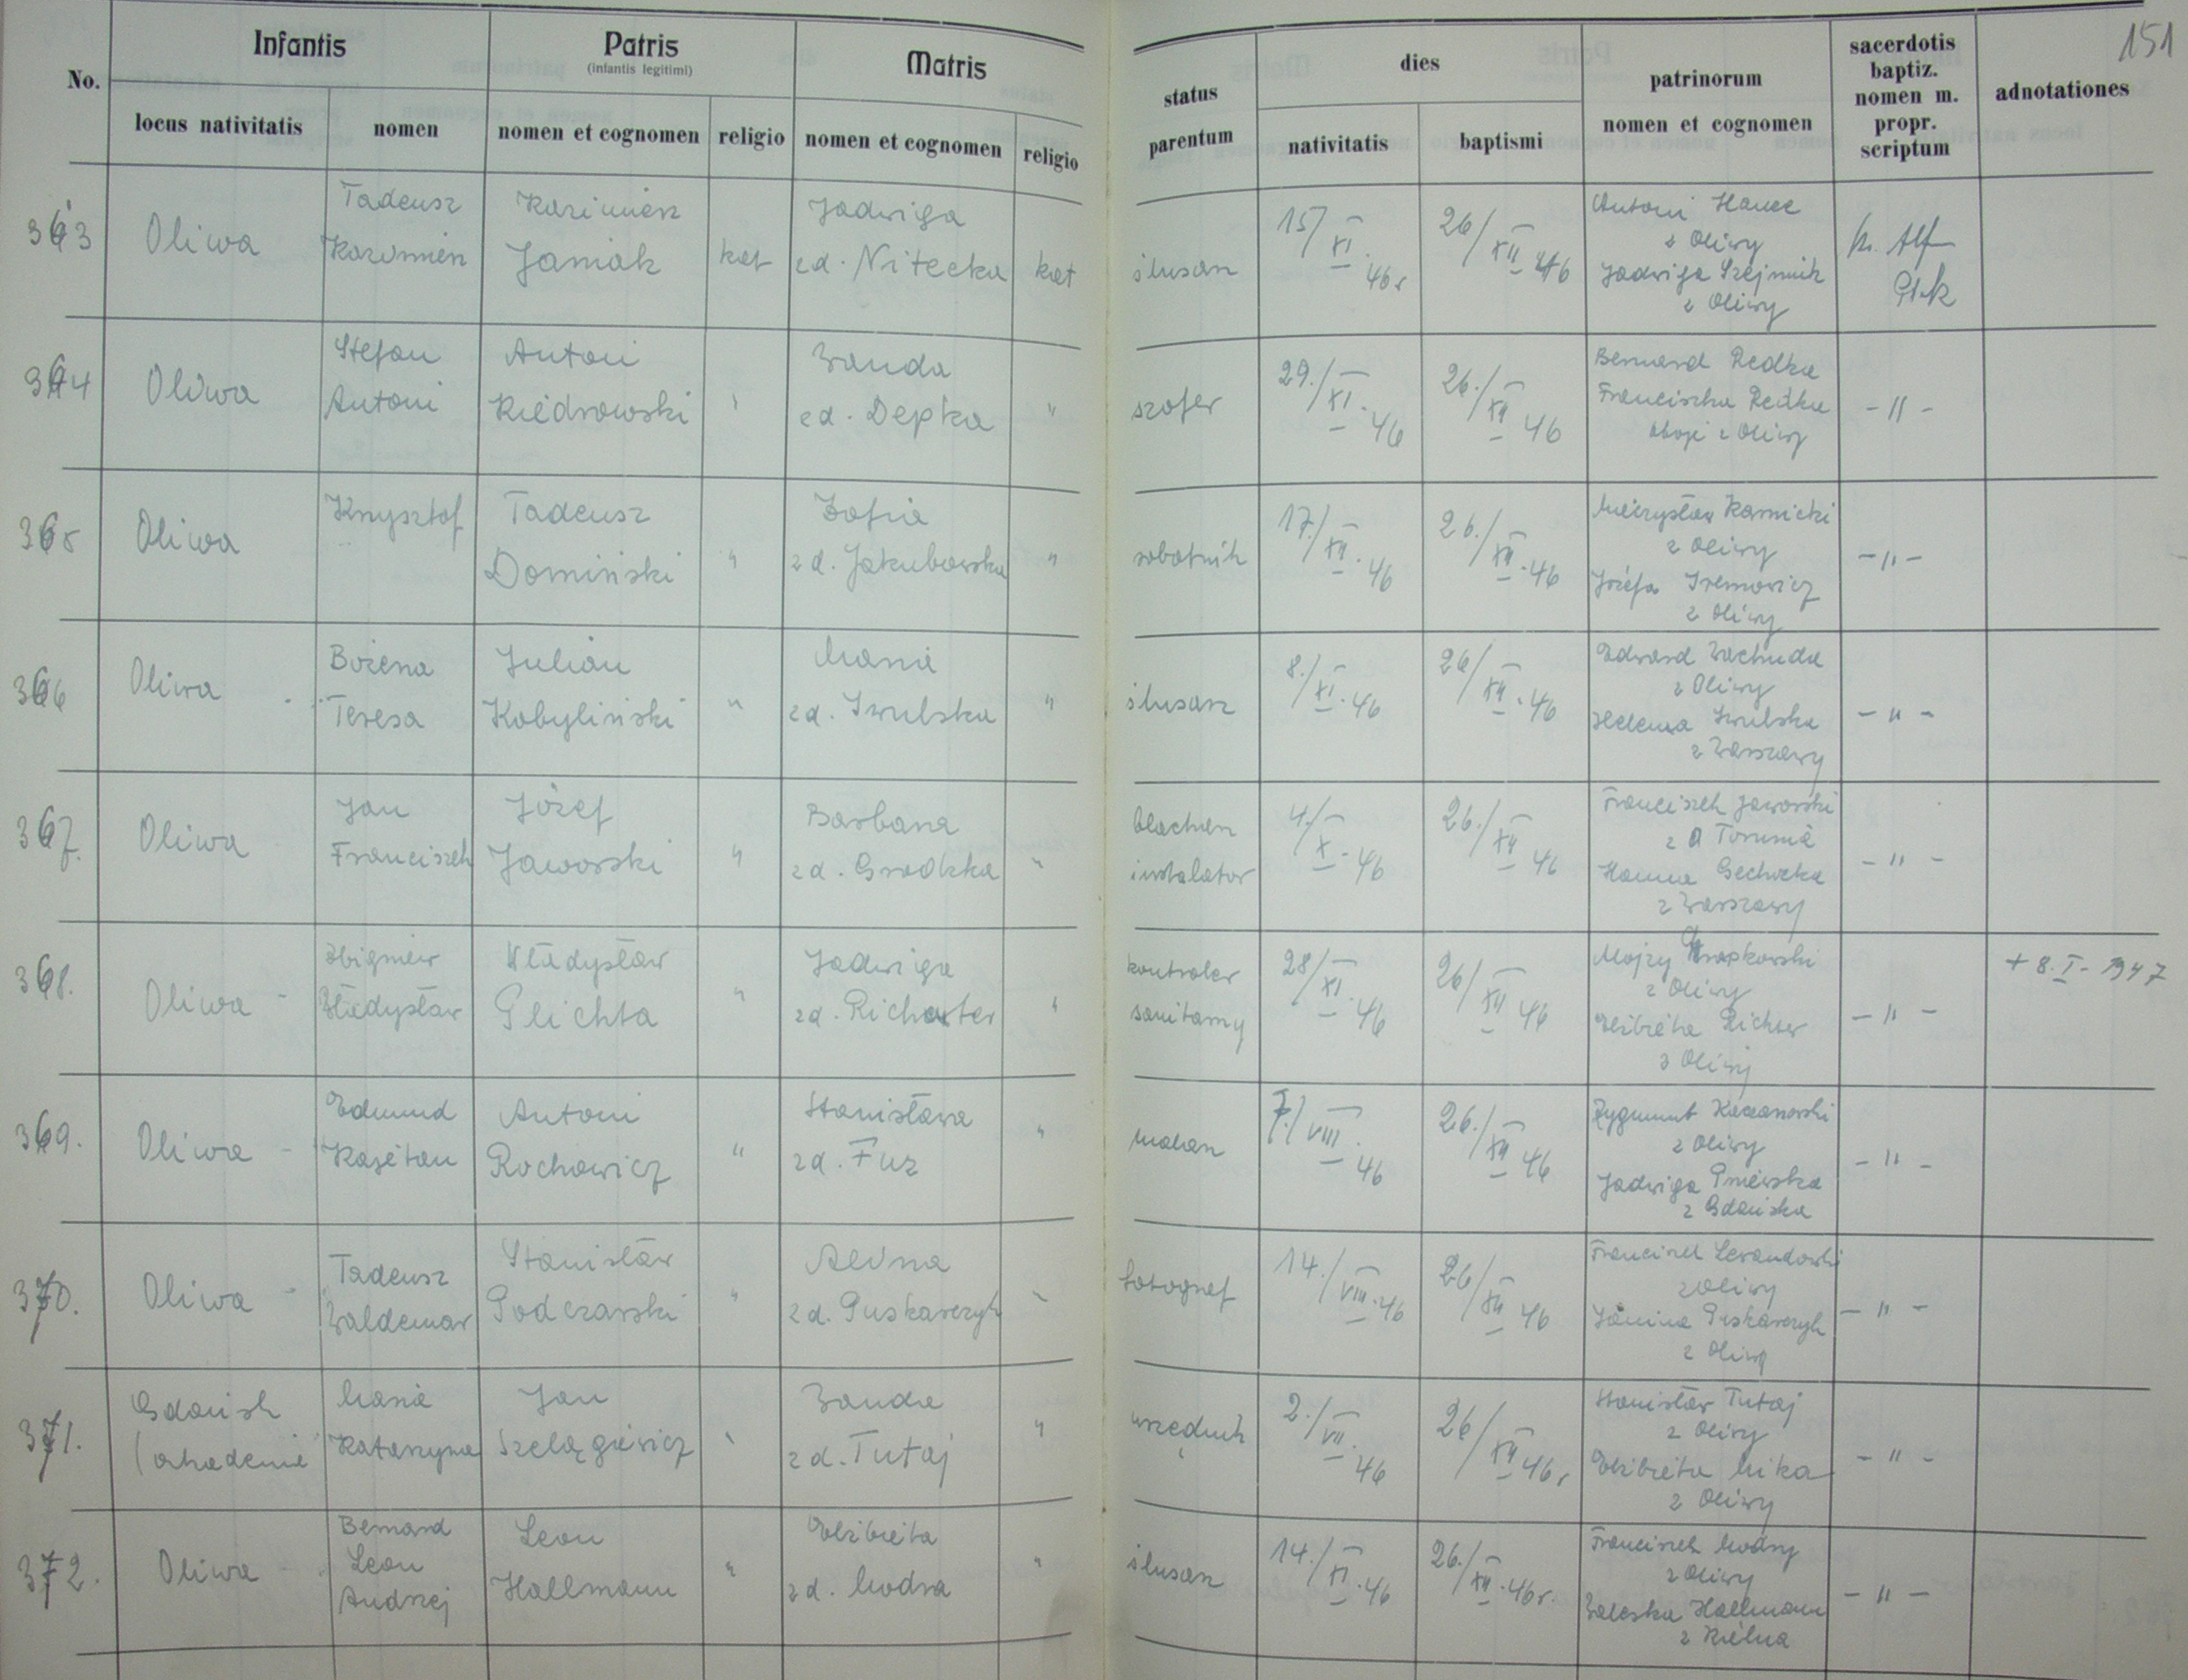 151
No.
Infantis
locus nativitatis
nomen
Patris
(infantis legitimi)
nomen et cognomen
religio
Matris
nomen et cognomen
religio
status
parentum
dies
nativitatis
baptismi
patrinorum
nomen et cognomen
sacerdotis
baptiz.
nomen m.
propr.
scriptum
adnotationes
363
Oliwa
Tadeusz
Kazimierz
Kazimierz
Janiak
kat
Jadwiga
zd. Nitecka
kat
ślusarz
15/XI. 46r
26/XII 46
Antoni
z Oliwy
Jadwiga Szejmik
z Oliwy
ks. Alf
364
Oliwa
Stefan
Antoni
Antoni
Kiedrowski
"
Wanda
zd. Depka
"
szofer
29./XI. 46
26./XII 46
Bernard Redka
Franciszka Redka
oboje z Oliwy
- " -
365
Oliwa
Krzysztof
Tadeusz
Domiński
"
Zofia
zd. Jakubowska
"
robotnik
17./XII. 46
26./XII. 46
Mieczysław Karnicki
z Oliwy
Józefa
z Oliwy
- " -
366
Oliwa
Bożena
Teresa
Julian
Kobyliński
"
Maria
zd. Iwulska
"
ślusarz
8./XI. 46
26/XII. 46
Edward Wachuda
z Oliwy
Helena Iwulska
z Warszawy
- " -
367.
Oliwa
Jan
Franciszek
Józef
Jaworski
"
Barbara
zd. Grodzka
"
blacharz
instalator
4./X. 46
26./XII 46
Franciszek Jaworski
z Torunia
Hanna
z Warszawy
- " -
368.
Oliwa
Zbigniew
Władysław
Władysław
Plichta
"
Jadwiga
zd. Richter
"
kontroler
sanitarny
28/XI. 46
26/XII 46
z Oliwy
Elżbieta Richter
z Oliwy
- " -
+ 8. I - 1947
369.
Oliwa
Edmund
Kajetan
Antoni
Rochowicz
"
Stanisława
zd. Fuz
"
malarz
7./VIII. 46
26./XII 46
Zygmunt
z Oliwy
Jadwiga Pniewska
z Gdańska
- " -
370.
Oliwa
Tadeusz
Waldemar
Stanisław
Podczarski
"
Alina
zd. Puskarczyk
"
fotograf
14./VIII. 46
26/XII 46
Franciszek Lewandowski
z Oliwy
Janina Puskarczyk
z Oliwy
- " -
371.
Gdańsk
(akademia
Maria
Katarzyna
Jan
Szelągiewicz
"
Wanda
zd. Tutaj
"
urzędnik
2./VII. 46
26/XII 46r
Stanisław Tutaj
z Oliwy
Elżbieta Mika
z Oliwy
- " -
372.
Oliwa
Bernard
Leon
Andrzej
Leon
Hallmann
"
Elżbieta
zd. Modra
"
ślusarz
14./XI. 46
26./XII. 46r.
Franciszek Modry
z Oliwy
Waleska Hallmann
z Kielna
- " -